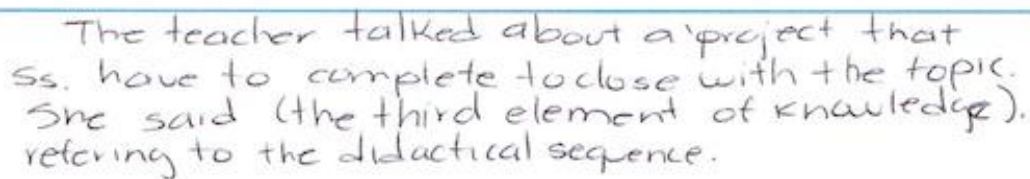 The teacher talked about a project that
Ss. have to complete to close with the topic.
She said (the third element of knowledge).
refering to the didactical sequence.